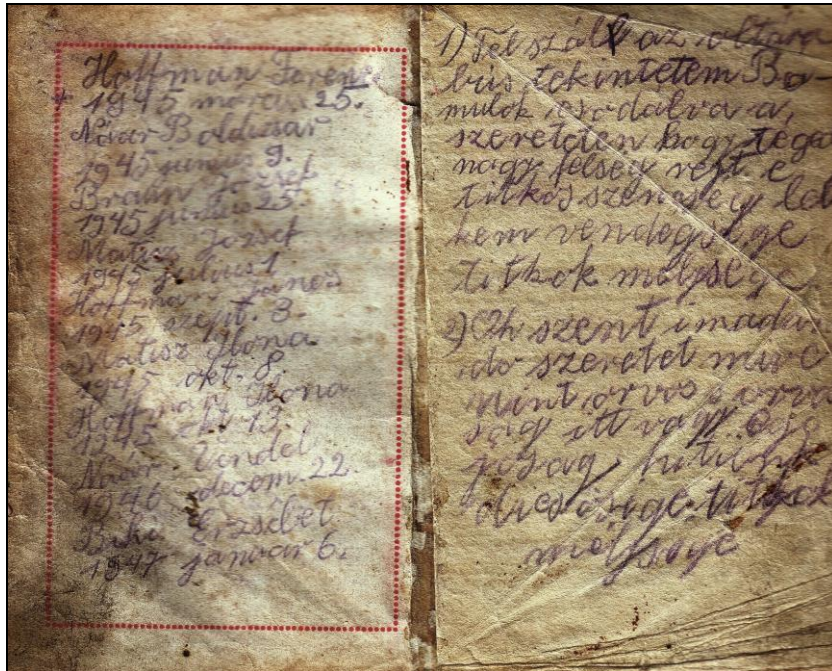 Hoffman Ferenc
1945 március 25.
Náar Boldizsár
1945 junius 9.
Braun József
1945 junius 25.
Matisz József
1945 julius 1
Hoffman János
1945 szept. 3.
Matisz Ilona
1945 okt. 8.
Hoffman Ilona
1945 okt 13.
Náar Vendel
1946 decem. 22.
Biki Erzsébet
1947 január 6.
1) Felszáll az oltára
bús tekintetem Bá-
mulok csodálva a
szereteten hogy téged
nagy felség rejt e
titkos szentség lel
kem vendégsége
titkok mélysége
2) Oh szent imádan
dó szeretet műve
Mint orvos s orvo
ság itt vagy
jóság, hitünk
dicsősége titkok
mélysége